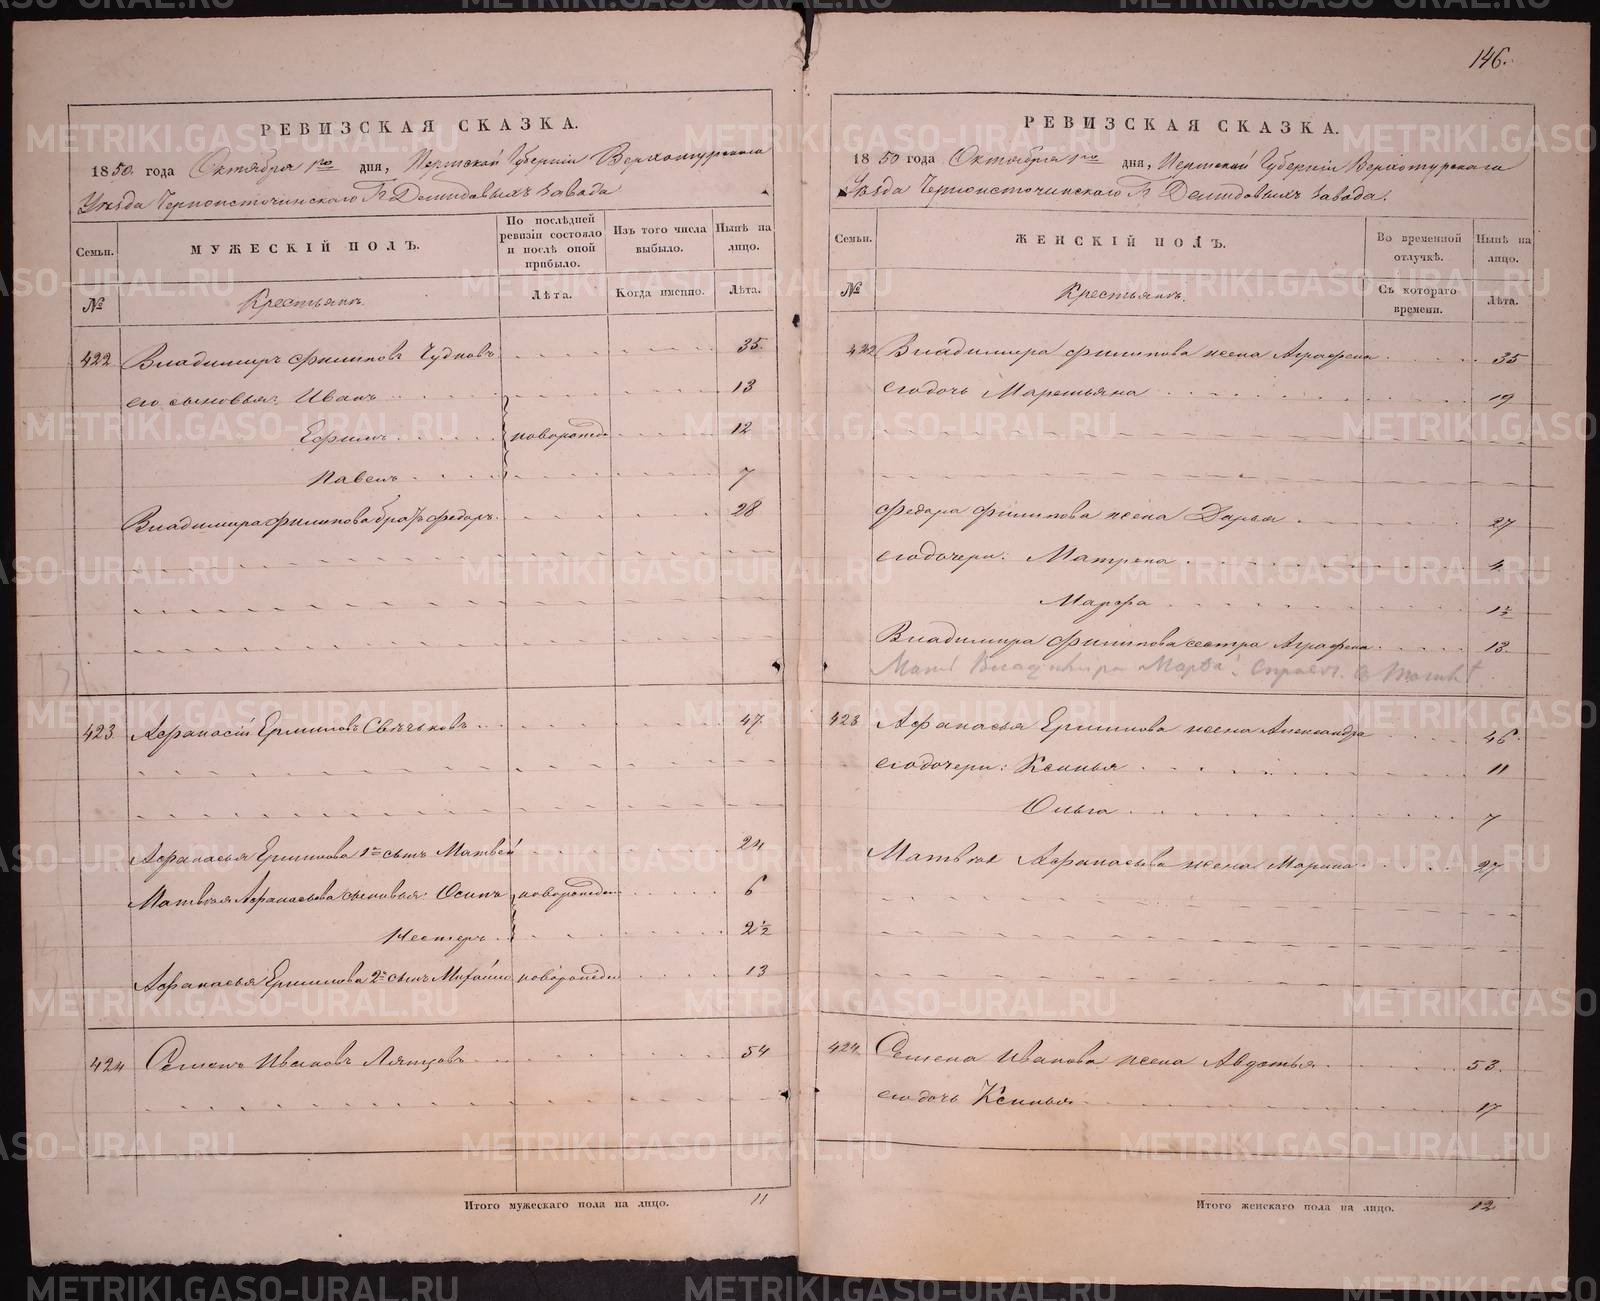 146.
РЕВИЗСКАЯ СКАЗКА.
1850 года Октября 1го дня, Пермской Губернiи Верхотурскаго
Уѣзда Черноисточинскаго Гг Демидовыхъ завода
Семьи.
МУЖЕСКIЙ ПОЛЪ.
По послѣдней ревизiи состояло и послѣ оной прибыло.
Изъ того числа выбыло.
Нынѣ на лицо.
№
Крестьянъ.
Лѣта.
Когда именно.
Лѣта.
422 Владимиръ Филиповъ Чудновъ 35.
его сыновья: Иванъ 13
Ефимъ новорожде 12
Павелъ 7
Владимира Филипова братъ Федоръ 28
423 Афанасiй Ермиловъ Свѣчьковъ 47.
Афанасья Ермилова 1й сынъ Матвей 24
Матвѣя Афанасьева сыновья: Осипъ новорожден 6
Нестеръ 2½
Афанасья Ермилова 2й сынъ Михайло новорожден 13
424 Семенъ Ивановъ 54
Итого мужескаго пола на лицо. 11
РЕВИЗСКАЯ СКАЗКА.
1850 года Октября 1го дня, Пермской Губернiи Верхотурскаго
Уѣзда Черноисточинскаго Гг Демидовыхъ завода.
Семьи.
ЖЕНСКIЙ ПОЛЪ.
Во временной отлучкѣ.
Нынѣ на лицо.
№
Крестьянъ.
Съ котораго времени.
Лѣта.
422 Владимира Филипова жена Аграфена 35
его дочь Маремьяна 19
Федора Филипова жена Дарья 27
его дочери: Матрена 4
Марфа 1½
Владимира Филипова сестра Аграфена 13.
Мать Владимира Марфа
423 Афанасья Ермилова жена Александра 46.
его дочери: Ксинья 11
Ольга 7
Матвѣя Афанасьева жена Марина 27
424. Семена Иванова жена Авдотья 53.
его дочь Ксинья 17
Итого женскаго пола на лицо. 12
METRIKI.GASO-URAL.RU